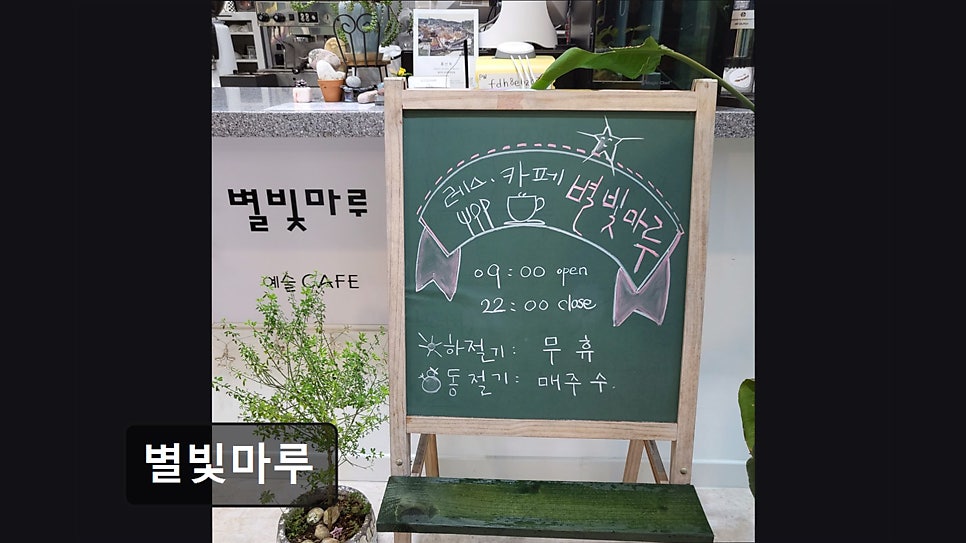 별빛마루
예술 CAFE
레스·카페 별빛마루
09:00 open
22:00 close
하절기: 무휴
동절기: 매주 수.
별빛마루